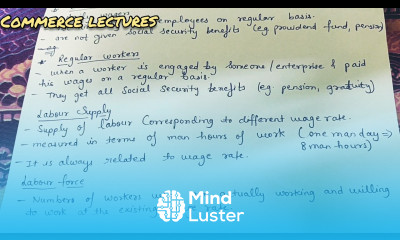 COMMERCE LECTURES
employees on regular basis.
- are not given social security benefits (eg provident fund, pension)
* Regular workers
- when a worker is engaged by someone / enterprise & paid
his wages on a regular basis.
- They get all Social Security benefits (eg. pension, gratuity)
Labour Supply
- Supply of labour corresponding to different wage rate.
- measured in terms of man hours of work (one man day =>
8 man hours)
- It is always related to wage rate.
Labour force
- Numbers of workers actually working and willing
to work at the existing rate.
Mind
Luster